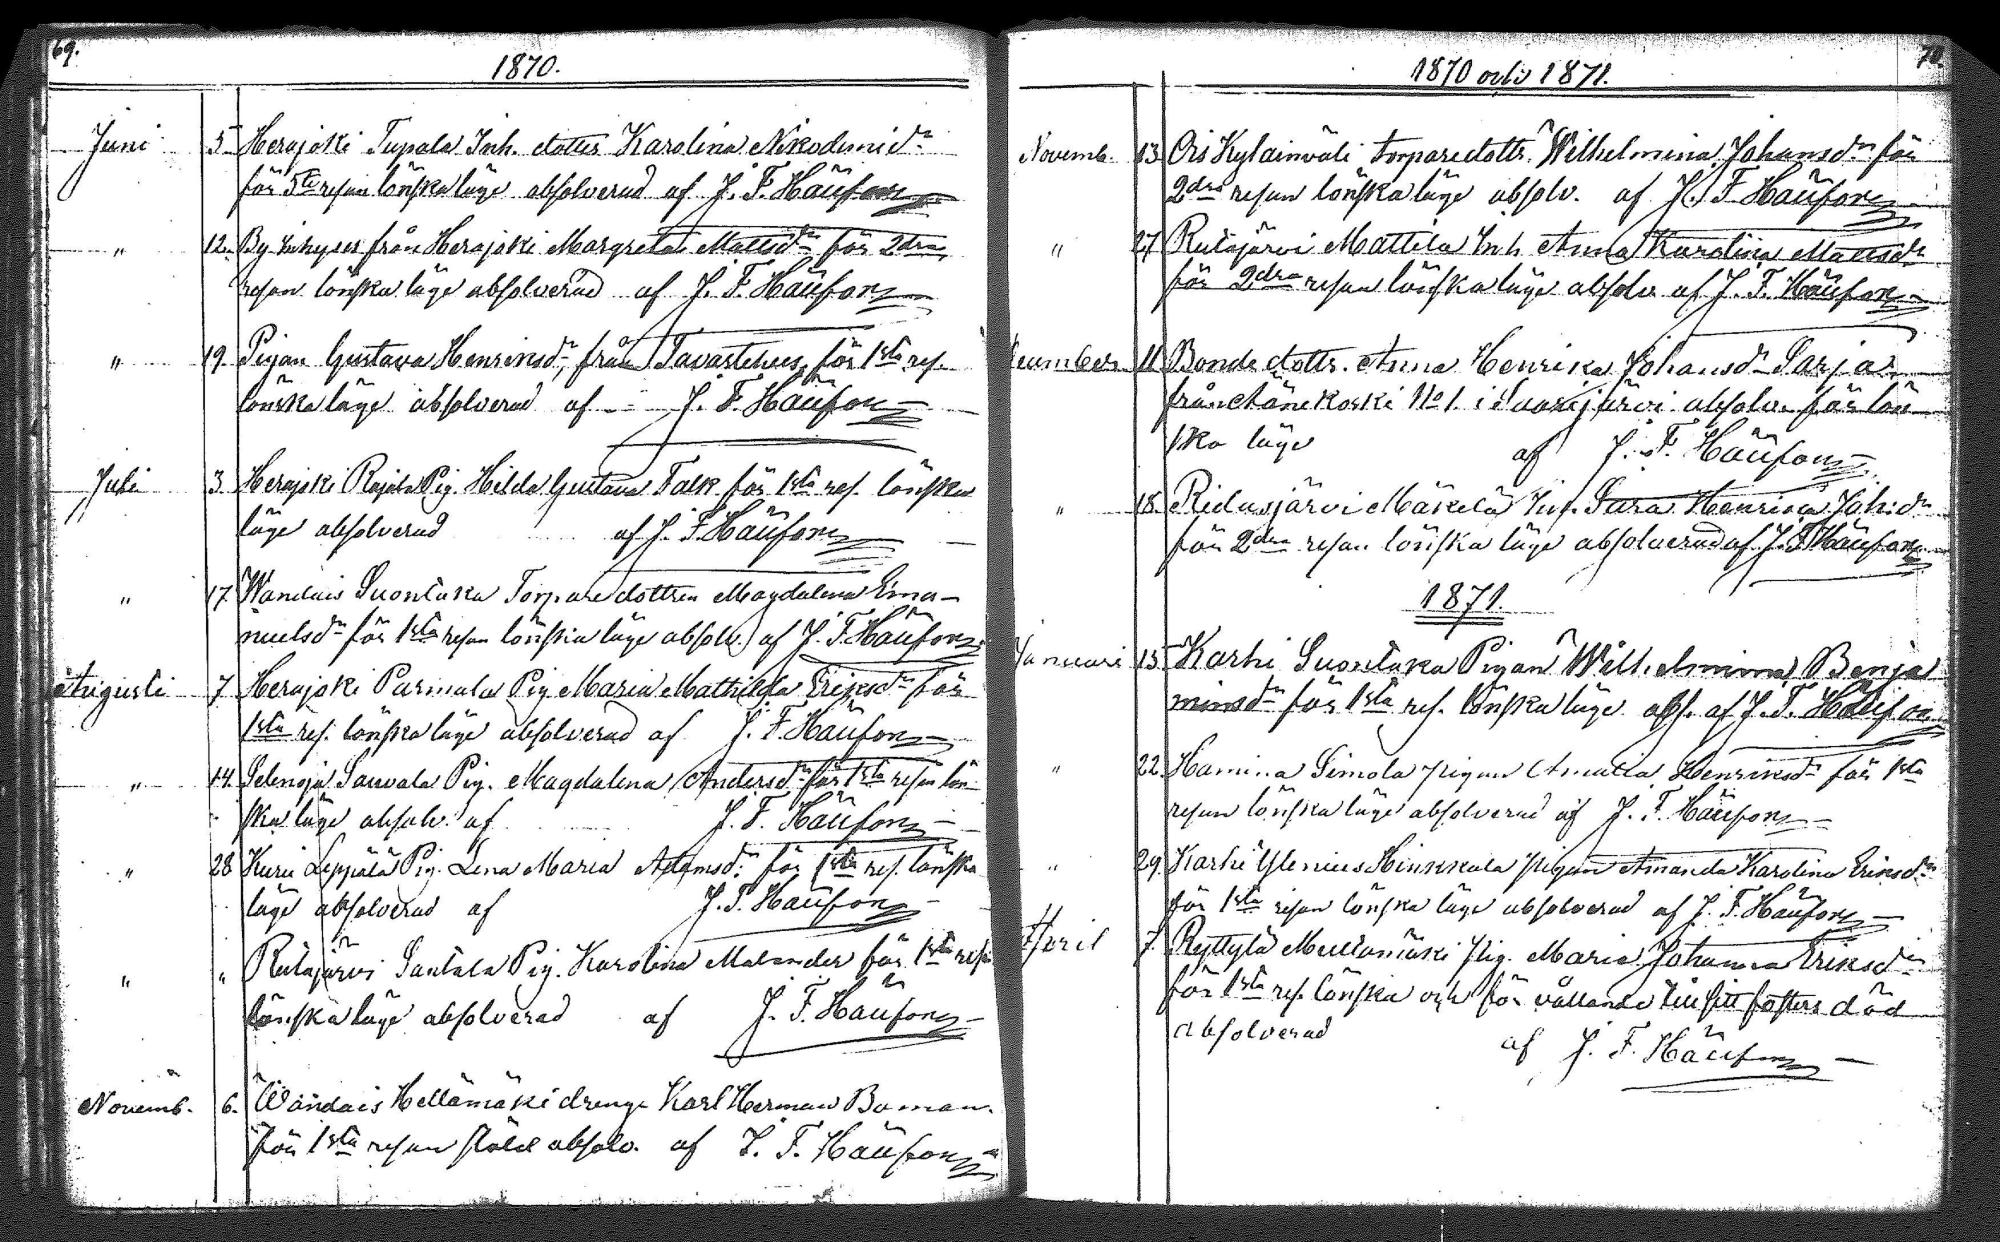 69.
1870.
Juni 5 Herajoki Tupala Inh. dotter Karolina Nikodimid:r
för 5te resan lönskaläge absolverad af J. F. Häüfon
" 12. By Inhyses från Herajoki Margreta Mattsd:r för 2dra
resan lönska läge absolverad af J. F. Häüfon
" 19. Pigan Gustava Henriksd:r, från Tavastehus, för 1sta res.
lönska läge absolverad af J. F. Häüfon
Juli 3 Herajoki Rajala Pig. Hilda Gustava Falk för 1sta res. lönska
läge absolverad af J. F. Häüfon
" 17 Wandais Suontaka Torpare dottren Magdalena Ema-
nuelsd:r för 1sta resan lönska läge absolv. af J. F. Häüfon
Augusti 7 Herajoki Parmala Pig. Maria Mathilda Eriksd:r för
1sta res. lönska läge absolverad af J. F. Häüfon
" 14. Selenoja Sauvala Pig. Magdalena Andersd:r för 1sta resan lön-
ska läge absolv. af J. F. Häüfon
" 28 Kuru Leppälä Pig. Lena Maria Adamsd:r för 1sta res. lönska
läge absolverad af J. F. Häüfon
" " Rutajärvi Santala Pig. Karolina Malander för 1sta resa
lönska läge absolverad af J. F. Häüfon
Novemb. 6. Wandais Hellämäki drenge Karl Herman Boman
för 1sta resan stöld absolv. af J. F. Häüfon
70.
1870 och 1871.
Novemb. 13 Ois Kylainväli torparedottr. Wilhelmina Johansd:r för
2dra resan lönska läge absolv. af J. F. Häüfon
" 27 Rutajärvi Mattila Inh. Anna Karolina Mattsd:r
för 2dra resan lönska läge absolv af J. F. Häüfon
December 11 Bonde dottr. Anna Henrika Johansd:r Sarja
från Änekoski No 1. i Saarijärvi absolv. för lön
ska läge af J. F. Häüfon
" 18. Ridasjärvi Mäkelä Inh. Sara Henrica Johsd:r
för 2dra resan lönska läge absolverad af J. F. Häüfon
1871.
Januari 15 Karhi Suontaka Pigan Wilhelmina Benja
minsd:r för 1sta res. lönska läge abs. af J. F. Häüfon
" 22. Hamina Simola pigan Amalia Henriksd:r för 1sta
resan lönska läge absolverad af J. F. Häüfon
" 29. Karhi Ylenius Hinkkala pigan Amanda Karolina Eriksd:r
för 1sta resan lönska läge absolverad af J. F. Häüfon
April 7. Ryttylä Mullamäki pig. Maria Johanna Eriksd:r
för 1sta res. lönska och för vållande till sitt fosters död
absolverad af J. F. Häüfon